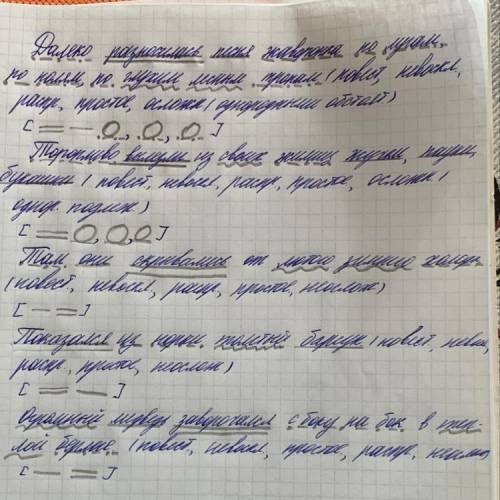 Далеко разносилась песня жаворонка по лугам,
по полям, по глухим лесным тропам (повест, невоскл,
распр, простое, осложн (однородными обстоят)
[ = — О, О, О ]
Торопливо вылезли из своих жилищ жучки, пауки,
букашки (повест, невоскл, распр, простое, осложн (
однр. подлеж)
[ = О, О, О ]
Там они скрывались от лютого зимнего холода
(повест, невоскл, распр, простое, неослож)
[ — = ]
Показался из норки толстый барсук (повест, невоск,
распр, простое, неослож)
[ = — ]
Огромный медведь заворочался с боку на бок в теп-
лой берлоге. (повест, невоскл, простое, распр, неослож)
[ — = ]